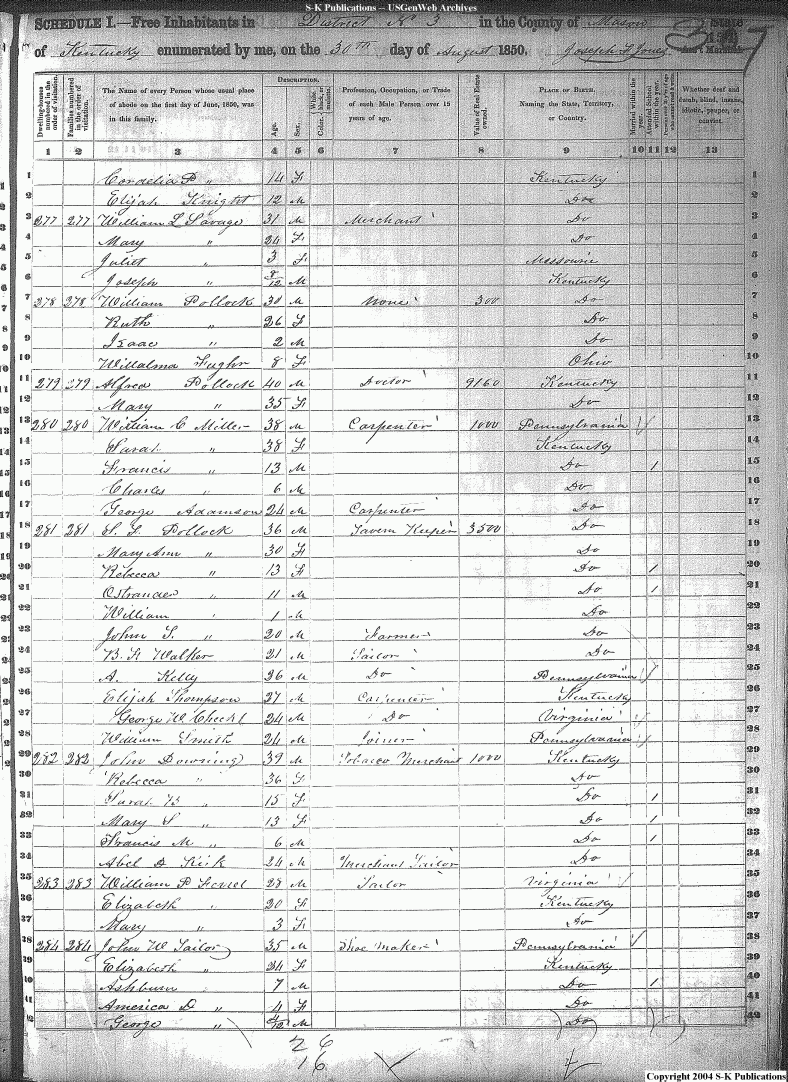 S-K Publications – USGenWeb Archives
SCHEDULE I.—Free Inhabitants in District No 3 in the County of Mason State
of Kentucky enumerated by me, on the 30th day of August 1850. Joseph F Jones
Dwelling-houses numbered in the order of visitation. Families numbered in the order of visitation. The Name of every Person whose usual place of abode on the first day of June, 1850, was in this family. DESCRIPTION. Age. Sex. Color, White, black, or mulatto. Profession, Occupation, or Trade of each Male Person over 15 years of age. Value of Real Estate owned. PLACE OF BIRTH. Naming the State, Territory, or Country. Married within the year. Attended School within the year. Whether deaf and dumb, blind, insane, idiotic, pauper, or convict.
1 2 3 4 5 6 7 8 9 10 11 12 13
1 Cordelia P " 14 F Kentucky 1
2 Elijah Knight 12 M Do 2
3 277 277 William L Savage 31 M Merchant Do 3
4 Mary " 24 F Do 4
5 Juliet " 3 F Missourie 5
6 Joseph " 8/12 M Kentucky 6
7 278 278 William Pollock 30 M None 300 Do 7
8 Ruth " 26 F Do 8
9 Izaac " 2 M Do 9
10 Willalma 8 F Ohio 10
11 279 279 Alfred Pollock 40 M Doctor 9160 Kentucky 11
12 Mary " 35 F Do 12
13 280 280 William C Miller 38 M Carpenter 1000 Pennsylvania / 13
14 Sarah " 38 F Kentucky 14
15 Francis " 13 M Do 1 15
16 Charles " 6 M Do 16
17 George Adamson 24 M Carpenter Do 17
18 281 281 S. F. Pollock 36 M Tavern Keeper 3500 Do 18
19 Mary Ann " 30 F Do 19
20 Rebecca " 13 F Do 1 20
21 Ostrander " 11 M Do 1 21
22 William " 1 M Do 22
23 John S. " 20 M Farmer Do 23
24 B. F. Walker 21 M Tailor Do 24
25 A. Kelly 26 M Do Pennsylvania / 25
26 Elijah Thompson 27 M Carpenter Kentucky 26
27 George W 24 M Do Virginia / 27
28 William Smith 24 M Joiner Pennsylvania / 28
29 282 282 John Downing 39 M Tobacco Merchant 1000 Kentucky 29
30 Rebecca " 36 F Do 30
31 Sarah B " 15 F Do 1 31
32 Mary S " 13 F Do 1 32
33 Francis M " 6 M Do 1 33
34 Abel D Kirk 24 M Merchant Tailor Do 34
35 283 283 William P 28 M Tailor Virginia / 35
36 Elizabeth " 20 F Kentucky 36
37 Mary " 3 F Do 37
38 284 284 John W Tailor 35 M Shoe Maker Pennsylvania / 38
39 Elizabeth " 34 F Kentucky 39
40 Ashburn " 7 M Do 1 40
41 America D " 4 F Do 41
42 George " 4/12 M Do 42
26
16
Copyright 2004 S-K Publications